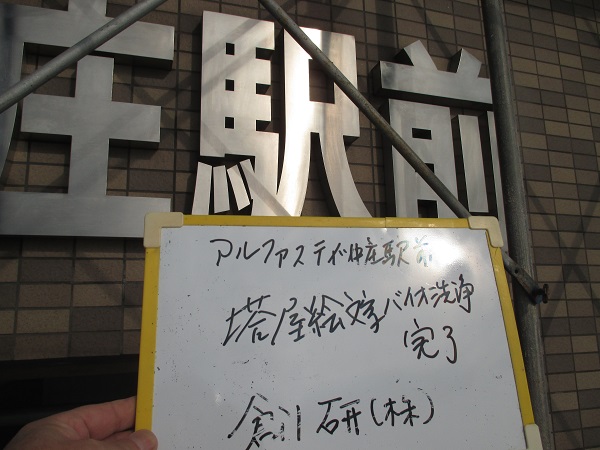 庄駅前
アルファステイツ中庄駅前
塔屋絵文字バイオ洗浄
完了
創研(株)